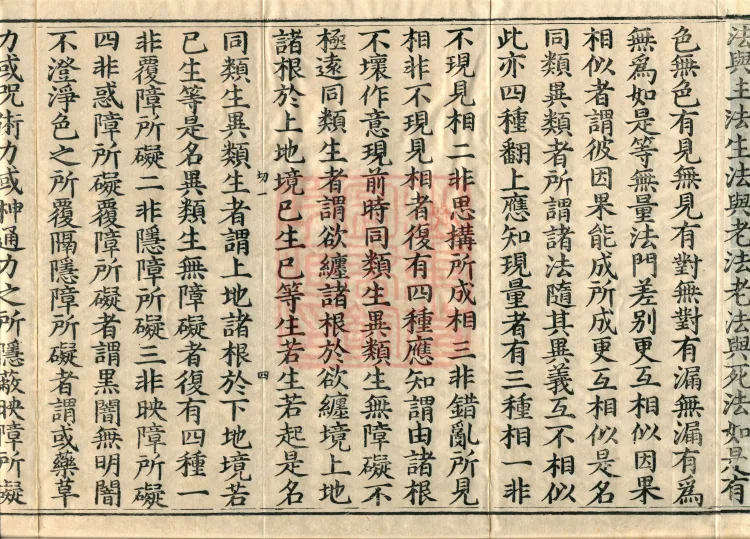 法與生法生法與老法老法與死法如是有
色無色有見無見有對無對有漏無漏有爲
無爲如是等無量法門差别更互相似因果
相似者謂彼因果能成所成更互相似是名
同類異類者所謂諸法隨其異義互不相似
此亦四種翻上應知現量者有三種相一非
不現見相二非思搆所成相三非錯亂所見
相非不現見相者復有四種應知謂由諸根
不壞作意現前時同類生異類生無障礙不
極遠同類生者謂欲纏諸根於欲纏境上地
諸根於上地境已生已等生若生若起是名
切一 四
同類生異類生者謂上地諸根於下地境若
已生等是名異類生無障礙者復有四種一
非覆障所礙二非隱障所礙三非映障所礙
四非惑障所礙覆障所礙者謂黑闇無明闇
不澄淨色之所覆隔隱障所礙者謂或藥草
力或呪術力或神通力之所隱蔽映障所礙